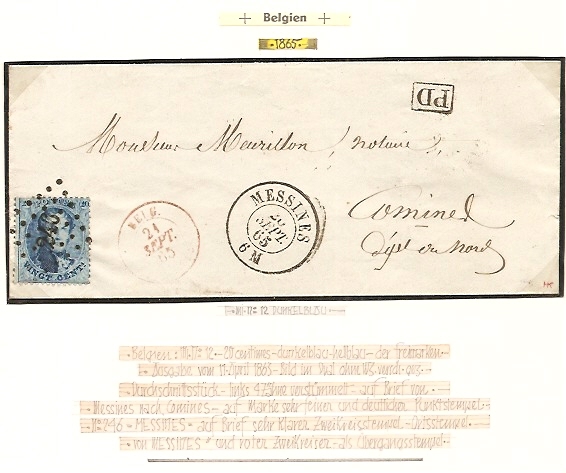 Belgien
1865
PD
Monsieur Meurillon, notaire,
Comines
Dépt du Nord
246
20 20
VINGT CENTS
BELG.
21
SEPT.
65
MESSINES
20
SEPT.
65
6 M
MI-Nº 12 DUNKELBLAU
Belgien: MI-Nº 12 - 20 centimes - dunkelblau-hellblau - der Freimarken
Ausgabe vom 17. April 1863 - Bild im Oval ohne WZ
Durchschnittsstück - links 4 Zähne verstümmelt - auf Brief von
Messines nach Comines - auf Marke sehr feiner und deutlicher Punktstempel
Nº 246 - MESSINES - auf Brief sehr klarer Zweikreisstempel - Ortsstempel
von MESSINES und roter Zweikreiser - als Übergangsstempel